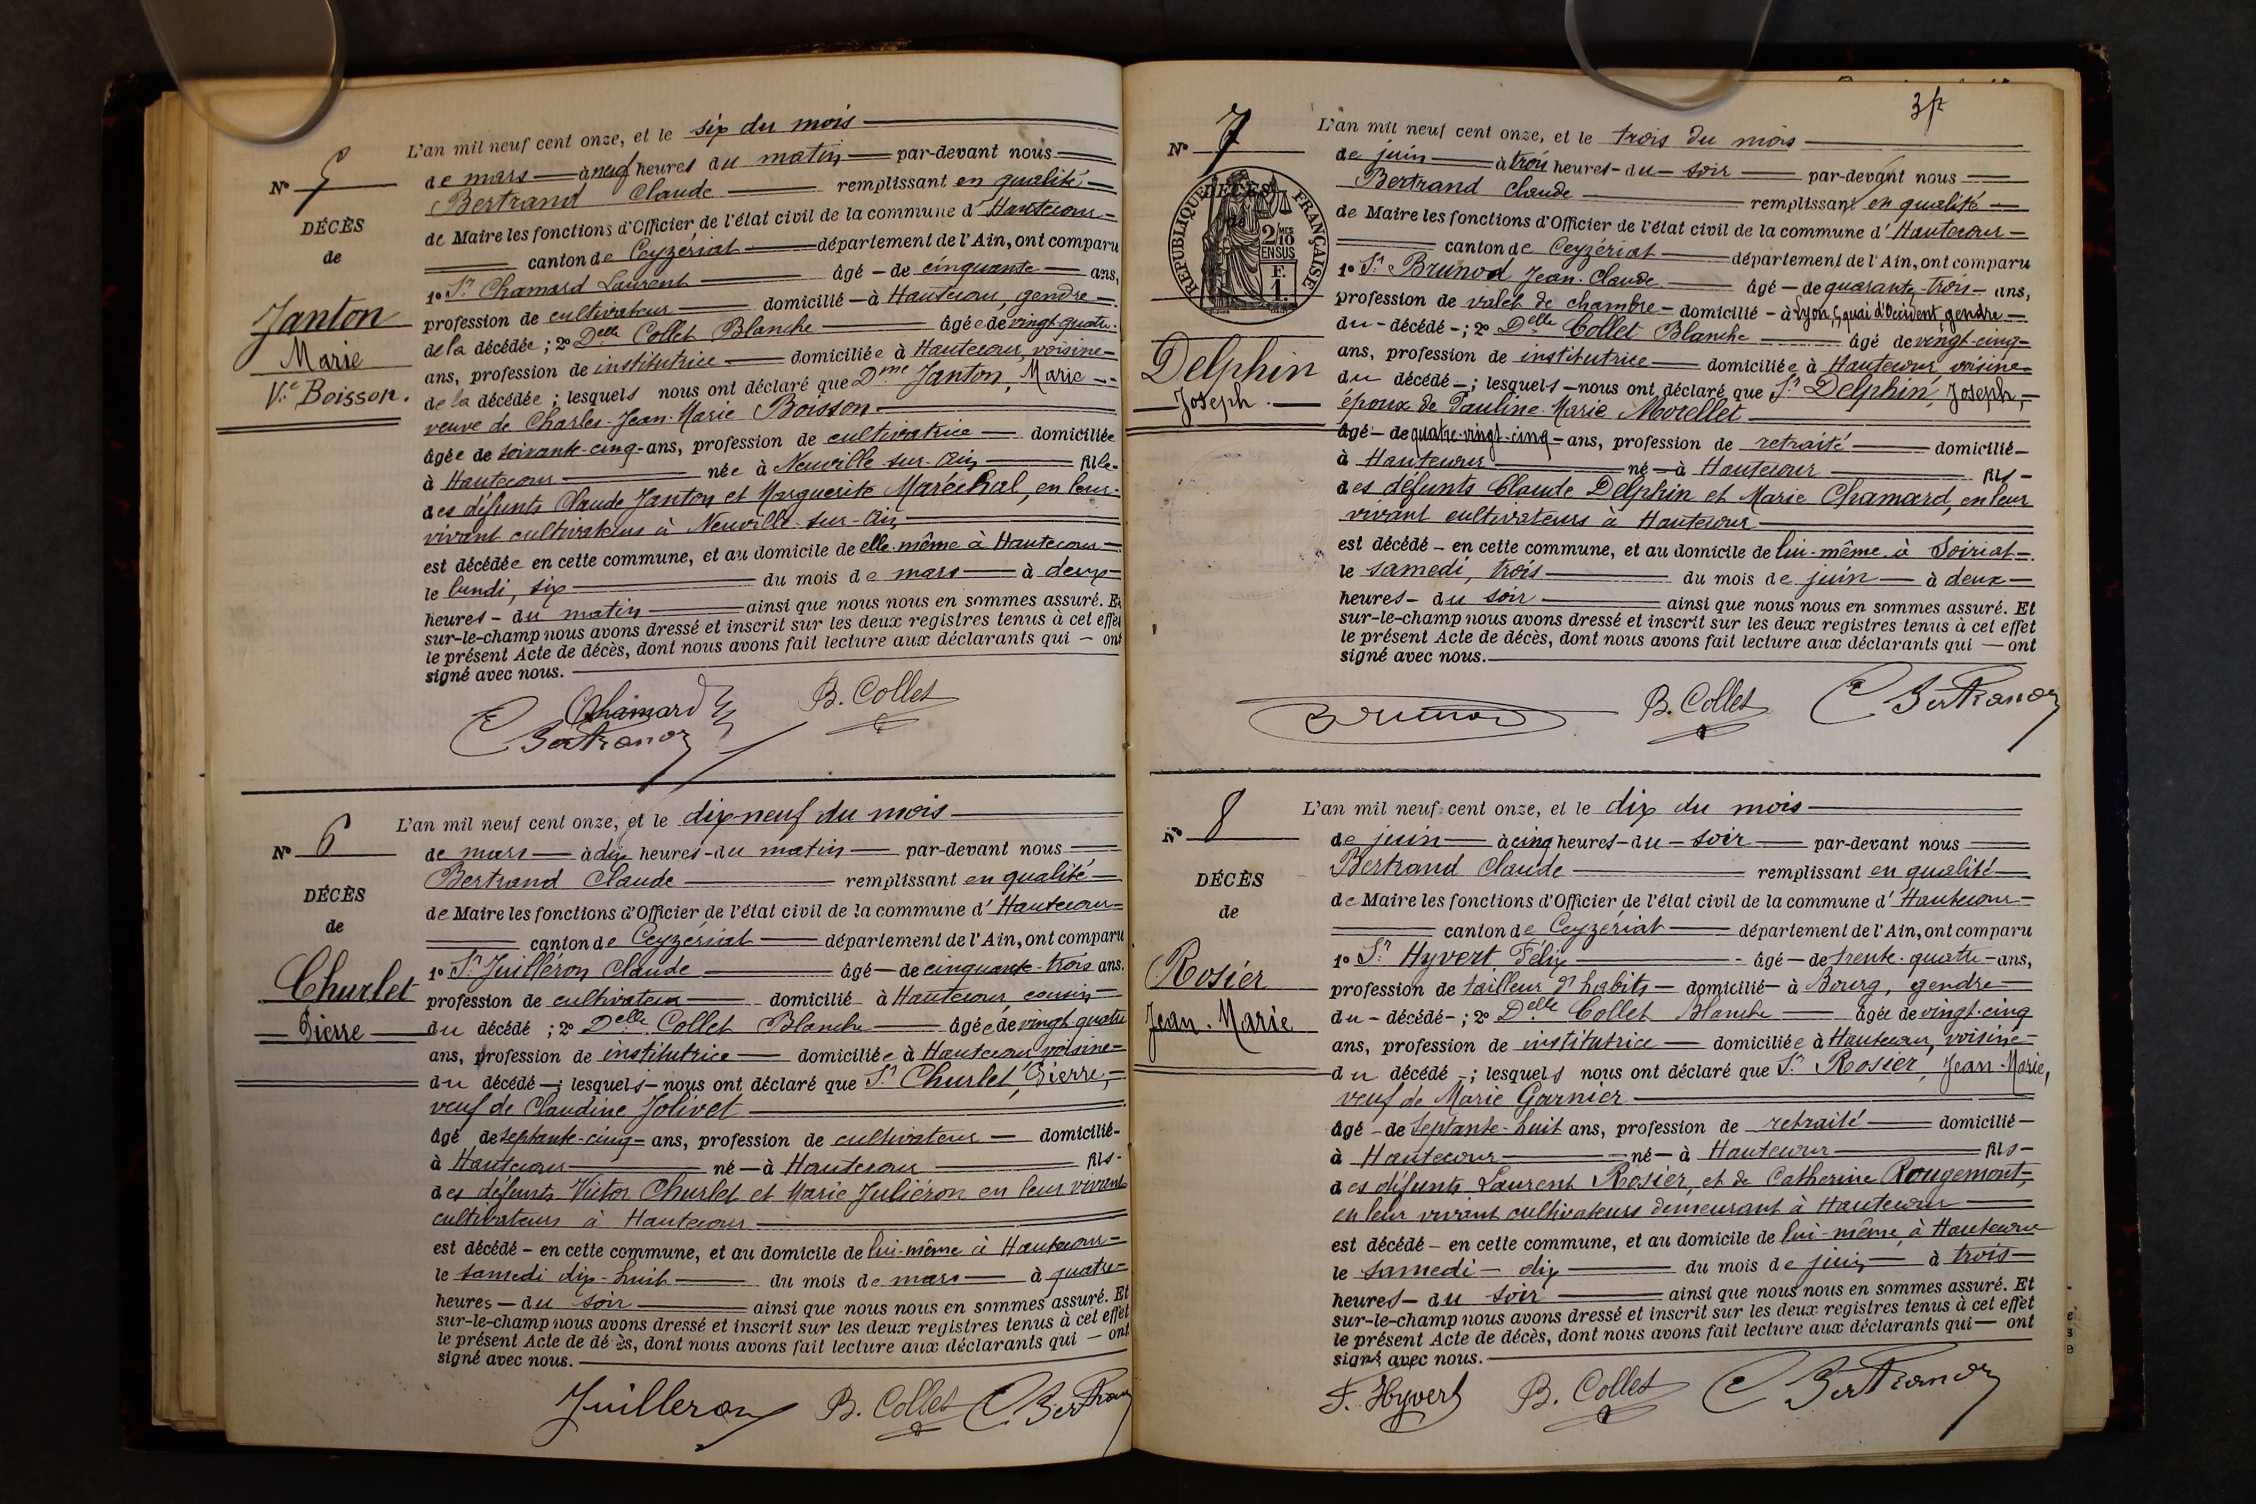 L'an mil neuf cent onze, et le six du mois
N° 5
de mars à neuf heures du matin par-devant nous
Bertrand Claude remplissant en qualité
DÉCÈS
de Maire les fonctions d'Officier de l'état civil de la commune d'Hautecour
de
canton de Ceyzériat département de l'Ain, ont comparu
1° Sr Chamard Laurent âgé de cinquante ans,
Janton
profession de cultivateur domicilié à Hautecour, gendre
Marie
de la décédée ; 2° Delle Collet Blanche âgée de vingt quatre
Ve Boisson.
ans, profession de institutrice domiciliée à Hautecour, voisine
de la décédée ; lesquels nous ont déclaré que Dme Janton, Marie
veuve de Charles-Jean-Marie Boisson
âgée de soixante-cinq ans, profession de cultivatrice domiciliée
à Hautecour née à Neuville-sur-Ain fille
des défunts Claude Janton et Marguerite Maréchal, en leur
vivant cultivateurs à Neuville-sur-Ain
est décédée en cette commune, et au domicile de elle-même à Hautecour
le lundi, six du mois de mars à deux
heures du matin ainsi que nous nous en sommes assuré. Et
sur-le-champ nous avons dressé et inscrit sur les deux registres tenus à cet effet
le présent Acte de décès, dont nous avons fait lecture aux déclarants qui ont
signé avec nous.
Chamard B. Collet
C Bertrand
L'an mil neuf cent onze, et le dix-neuf du mois
N° 6
de mars à dix heures du matin par-devant nous
Bertrand Claude remplissant en qualité
DÉCÈS
de Maire les fonctions d'Officier de l'état civil de la commune d'Hautecour
de
canton de Ceyzériat département de l'Ain, ont comparu
1° Sr Juilléron Claude âgé de cinquante-trois ans.
Churlet
profession de cultivateur domicilié à Hautecour, cousin
Pierre
du décédé ; 2° Delle Collet Blanche âgée de vingt quatre
ans, profession de institutrice domiciliée à Hautecour voisine
du décédé ; lesquels nous ont déclaré que Sr Churlet, Pierre,
veuf de Claudine Jolivet
âgé de septante-cinq ans, profession de cultivateur domicilié
à Hautecour né à Hautecour fils
des défunts Victor Churlet et Marie Juliéron en leur vivant
cultivateurs à Hautecour
est décédé en cette commune, et au domicile de lui-même à Hautecour
le samedi dix-huit du mois de mars à quatre
heures du soir ainsi que nous nous en sommes assuré. Et
sur-le-champ nous avons dressé et inscrit sur les deux registres tenus à cet effet
le présent Acte de décès, dont nous avons fait lecture aux déclarants qui ont
signé avec nous.
Juilleron B. Collet C. Bertrand
L'an mil neuf cent onze, et le trois du mois
N° 7
de juin à trois heures du soir par-devant nous
Bertrand Claude remplissant en qualité
DÉCÈS
de
RÉPUBLIQUE FRANÇAISE
2/10 MES
EN SUS
F.
1.
de Maire les fonctions d'Officier de l'état civil de la commune d'Hautecour
canton de Ceyzériat département de l'Ain, ont comparu
1° Sr Brunod Jean-Claude âgé de quarante-trois ans,
profession de valet de chambre domicilié à Lyon, 5, quai d'Occident, gendre
Delphin
Joseph.
du décédé ; 2° Delle Collet Blanche âgé de vingt-cinq
ans, profession de institutrice domiciliée à Hautecour, voisine
du décédé ; lesquels nous ont déclaré que Sr Delphin, Joseph,
époux de Pauline-Marie Morellet
âgé de quatre-vingt-cinq ans, profession de retraité domicilié
à Hautecour né à Hautecour fils
des défunts Claude Delphin et Marie Chamard, en leur
vivant cultivateurs à Hautecour
est décédé en cette commune, et au domicile de lui-même à Soiriat
le samedi, trois du mois de juin à deux
heures du soir ainsi que nous nous en sommes assuré. Et
sur-le-champ nous avons dressé et inscrit sur les deux registres tenus à cet effet
le présent Acte de décès, dont nous avons fait lecture aux déclarants qui ont
signé avec nous.
Brunod B. Collet C Bertrand
L'an mil neuf cent onze, et le dix du mois
N° 8
de juin à cinq heures du soir par-devant nous
Bertrand Claude remplissant en qualité
DÉCÈS
de Maire les fonctions d'Officier de l'état civil de la commune d'Hautecour
de
canton de Ceyzériat département de l'Ain, ont comparu
1° Sr Hyvert Félix âgé de trente-quatre ans,
Rosier
profession de tailleur d'habits domicilié à Bourg, gendre
Jean-Marie
du décédé ; 2° Delle Collet Blanche âgée de vingt-cinq
ans, profession de institutrice domiciliée à Hautecour, voisine
du décédé ; lesquels nous ont déclaré que Sr Rosier, Jean-Marie,
veuf de Marie Garnier
âgé de septante-huit ans, profession de retraité domicilié
à Hautecour né à Hautecour fils
des défunts Laurent Rosier, et de Catherine Rougemont,
en leur vivant cultivateurs demeurant à Hautecour
est décédé en cette commune, et au domicile de lui-même, à Hautecour
le samedi dix du mois de juin à trois
heures du soir ainsi que nous nous en sommes assuré. Et
sur-le-champ nous avons dressé et inscrit sur les deux registres tenus à cet effet
le présent Acte de décès, dont nous avons fait lecture aux déclarants qui ont
signé avec nous.
F. Hyvert B. Collet C Bertrand